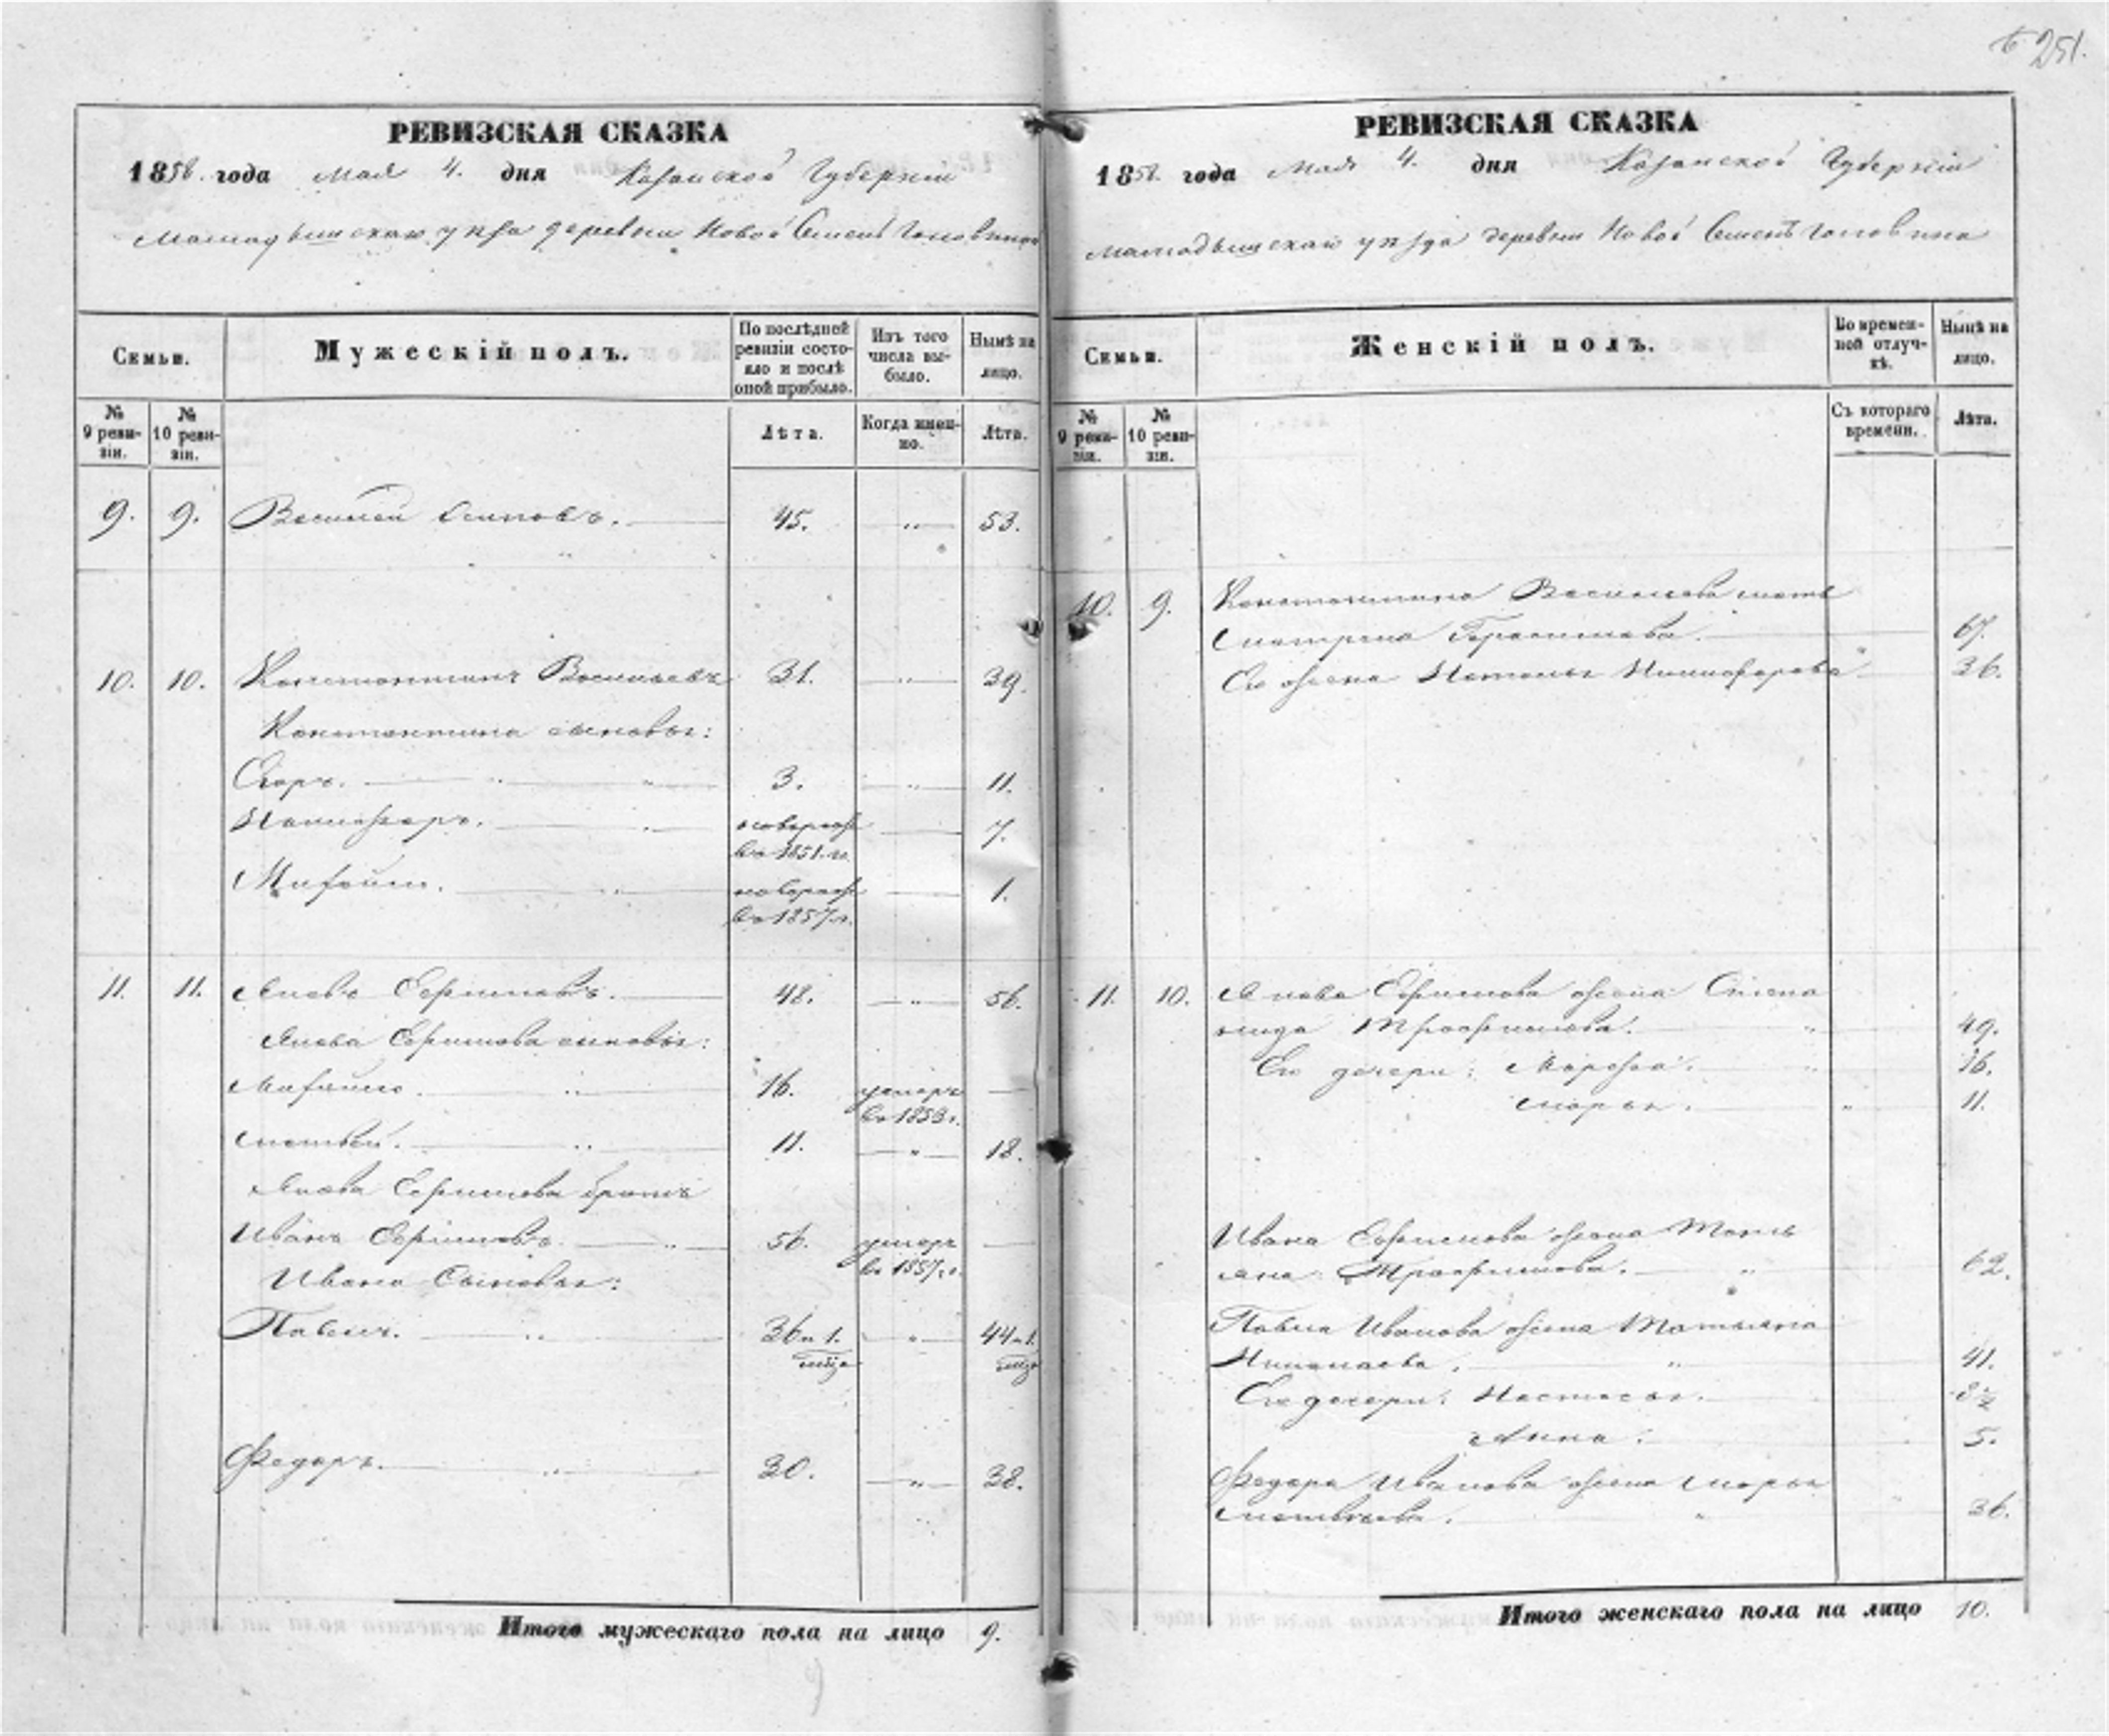 251.
РЕВИЗСКАЯ СКАЗКА
1858. года мая 4. дня Казанской Губерніи
деревни Новой
Семьи.
Мужескій полъ.
По послѣдней ревизіи состояло и послѣ оной прибыло.
Изъ того числа выбыло.
Нынѣ на лицо.
№ 9 ревизіи.
№ 10 ревизіи.
Лѣта.
Когда именно.
Лѣта.
9. 9. Василей Осиповъ. 45. „ 53.
10. 10. Константинъ Васильевъ 31. „ 39.
Константина сыновья:
Егоръ. „ „ 3. „ 11.
Никифоръ. „ новорож 7.
въ 1851. г.
Михайло. „ новорож 1.
въ 1857. г.
11. 11. Яковъ Ефимовъ. 48. „ 56.
Якова Ефимова сыновья:
Михайло. „ 16. умеръ —
въ 1853 г.
Матвей. „ 11. „ 18.
Якова Ефимова братъ
Иванъ Ефимовъ. „ 56. умеръ —
въ 1857. г.
Ивана Сыновья:
Павелъ. „ 36 и 1. „ 44 и 1.
Федоръ. „ 30. „ 38.
Итого мужескаго пола на лицо 9.
РЕВИЗСКАЯ СКАЗКА
1858. года Мая 4. дня Казанской Губерніи
деревни Новой
Семьи.
Женскій полъ.
Во временной отлучкѣ.
Нынѣ на лицо.
№ 9 ревизіи.
№ 10 ревизіи.
Съ котораго времени.
Лѣта.
10. 9. Константина Васильева мать
Матрена Герасимова. 67.
Его жена Наталья Никифорова „ 36.
11. 10. Якова Ефимова жена Степа
нида Трофимова. „ 49.
Его дочери: Марфа. „ 16.
Марья. „ 11.
Ивана Ефимова жена Тать
яна Трофимова. „ 62.
Павла Иванова жена Татьяна
Николаева. „ 41.
Его дочери: Настасья.
Анна. 5.
Федора Иванова жена Марья
Матвеева. „ 36.
Итого женскаго пола на лицо 10.